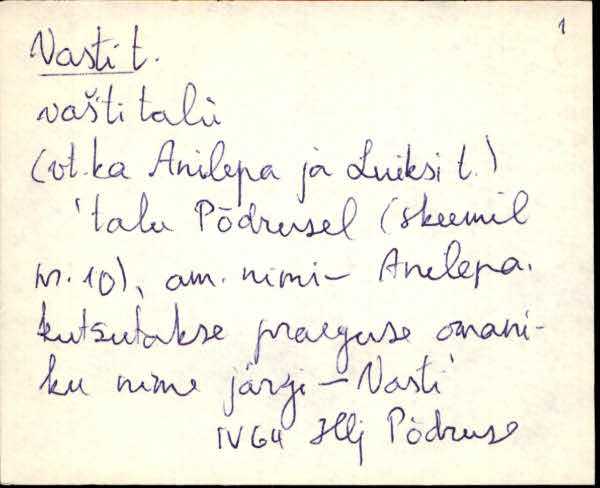 1
Vasti t.
vašti talù
(vt. ka Anilepa ja Luiksi t.)
'talu Põdrusel (skeemil
nr. 10), am. nimi - Anilepa.
kutsutakse praeguse omani-
ku nime järgi - Vasti'
IV 64 Hlj Põdruse